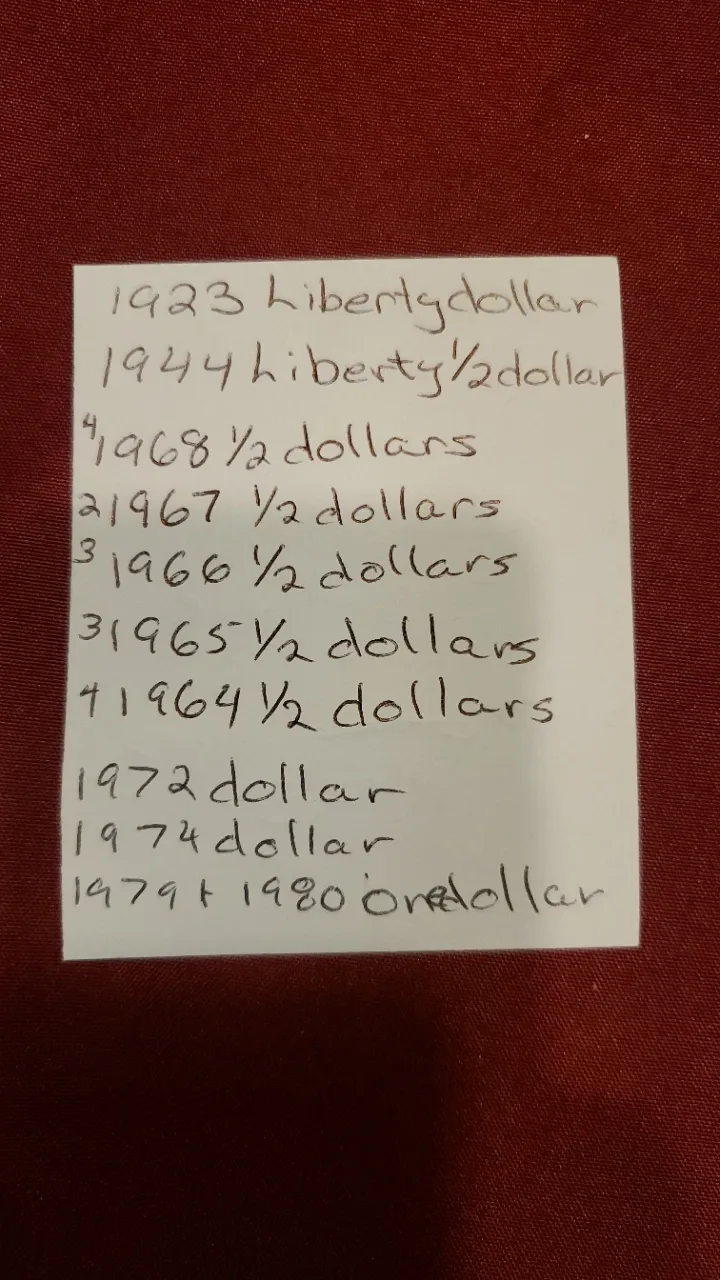 1923 Liberty dollar
1944 Liberty 1/2 dollar
4 1968 1/2 dollars
2 1967 1/2 dollars
3 1966 1/2 dollars
3 1965 1/2 dollars
4 1964 1/2 dollars
1972 dollar
1974 dollar
1979 + 1980 one dollar